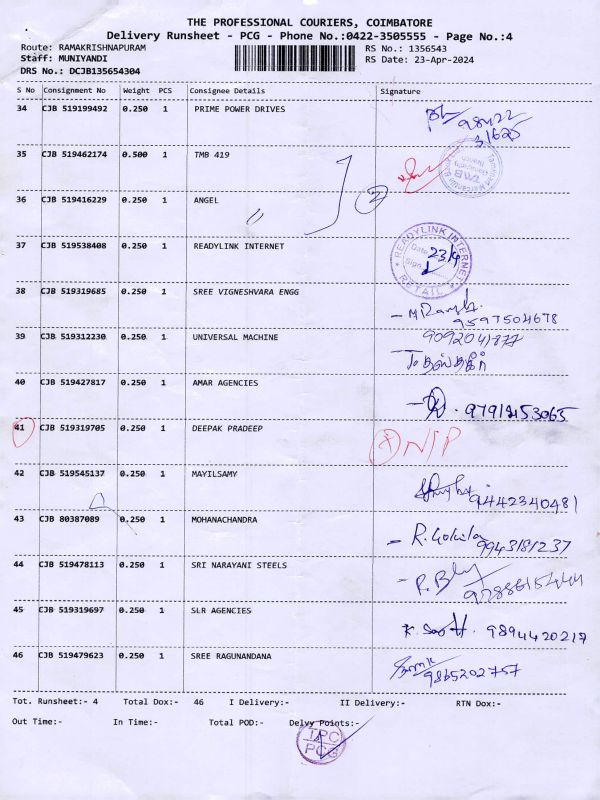 THE PROFESSIONAL COURIERS, COIMBATORE
Delivery Runsheet - PCG - Phone No.:0422-3505555 - Page No.:4
Route: RAMAKRISHNAPURAM RS No.: 1356543
Staff: MUNIYANDI RS Date: 23-Apr-2024
DRS No.: DCJB135654304
S No Consignment No Weight PCS Consignee Details Signature
34 CJB 519199492 0.250 1 PRIME POWER DRIVES
35 CJB 519462174 0.500 1 TMB 419
TMB
2
36 CJB 519416229 0.250 1 ANGEL
37 CJB 519538408 0.250 1 READYLINK INTERNET
READYLINK INTERNET
Date 23/4
Sign
RETAIL
38 CJB 519319685 0.250 1 SREE VIGNESHVARA ENGG
9597504678
39 CJB 519312230 0.250 1 UNIVERSAL MACHINE
9092041877
40 CJB 519427817 0.250 1 AMAR AGENCIES
41 CJB 519319705 0.250 1 DEEPAK PRADEEP
N/P
42 CJB 519545137 0.250 1 MAYILSAMY
9442340481
43 CJB 80387089 0.250 1 MOHANACHANDRA
R. Gokila 9943181237
44 CJB 519478113 0.250 1 SRI NARAYANI STEELS
45 CJB 519319697 0.250 1 SLR AGENCIES
9894420217
46 CJB 519479623 0.250 1 SREE RAGUNANDANA
9865202757
Tot. Runsheet:- 4 Total Dox:- 46 I Delivery:- II Delivery:- RTN Dox:-
Out Time:- In Time:- Total POD:- Delvy Points:-
TPC
PCG